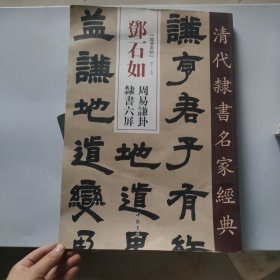 清代隸書名家經典
謙亨君子有
謙地道
益謙地道變
鄧石如
周易謙卦
隸書六屏